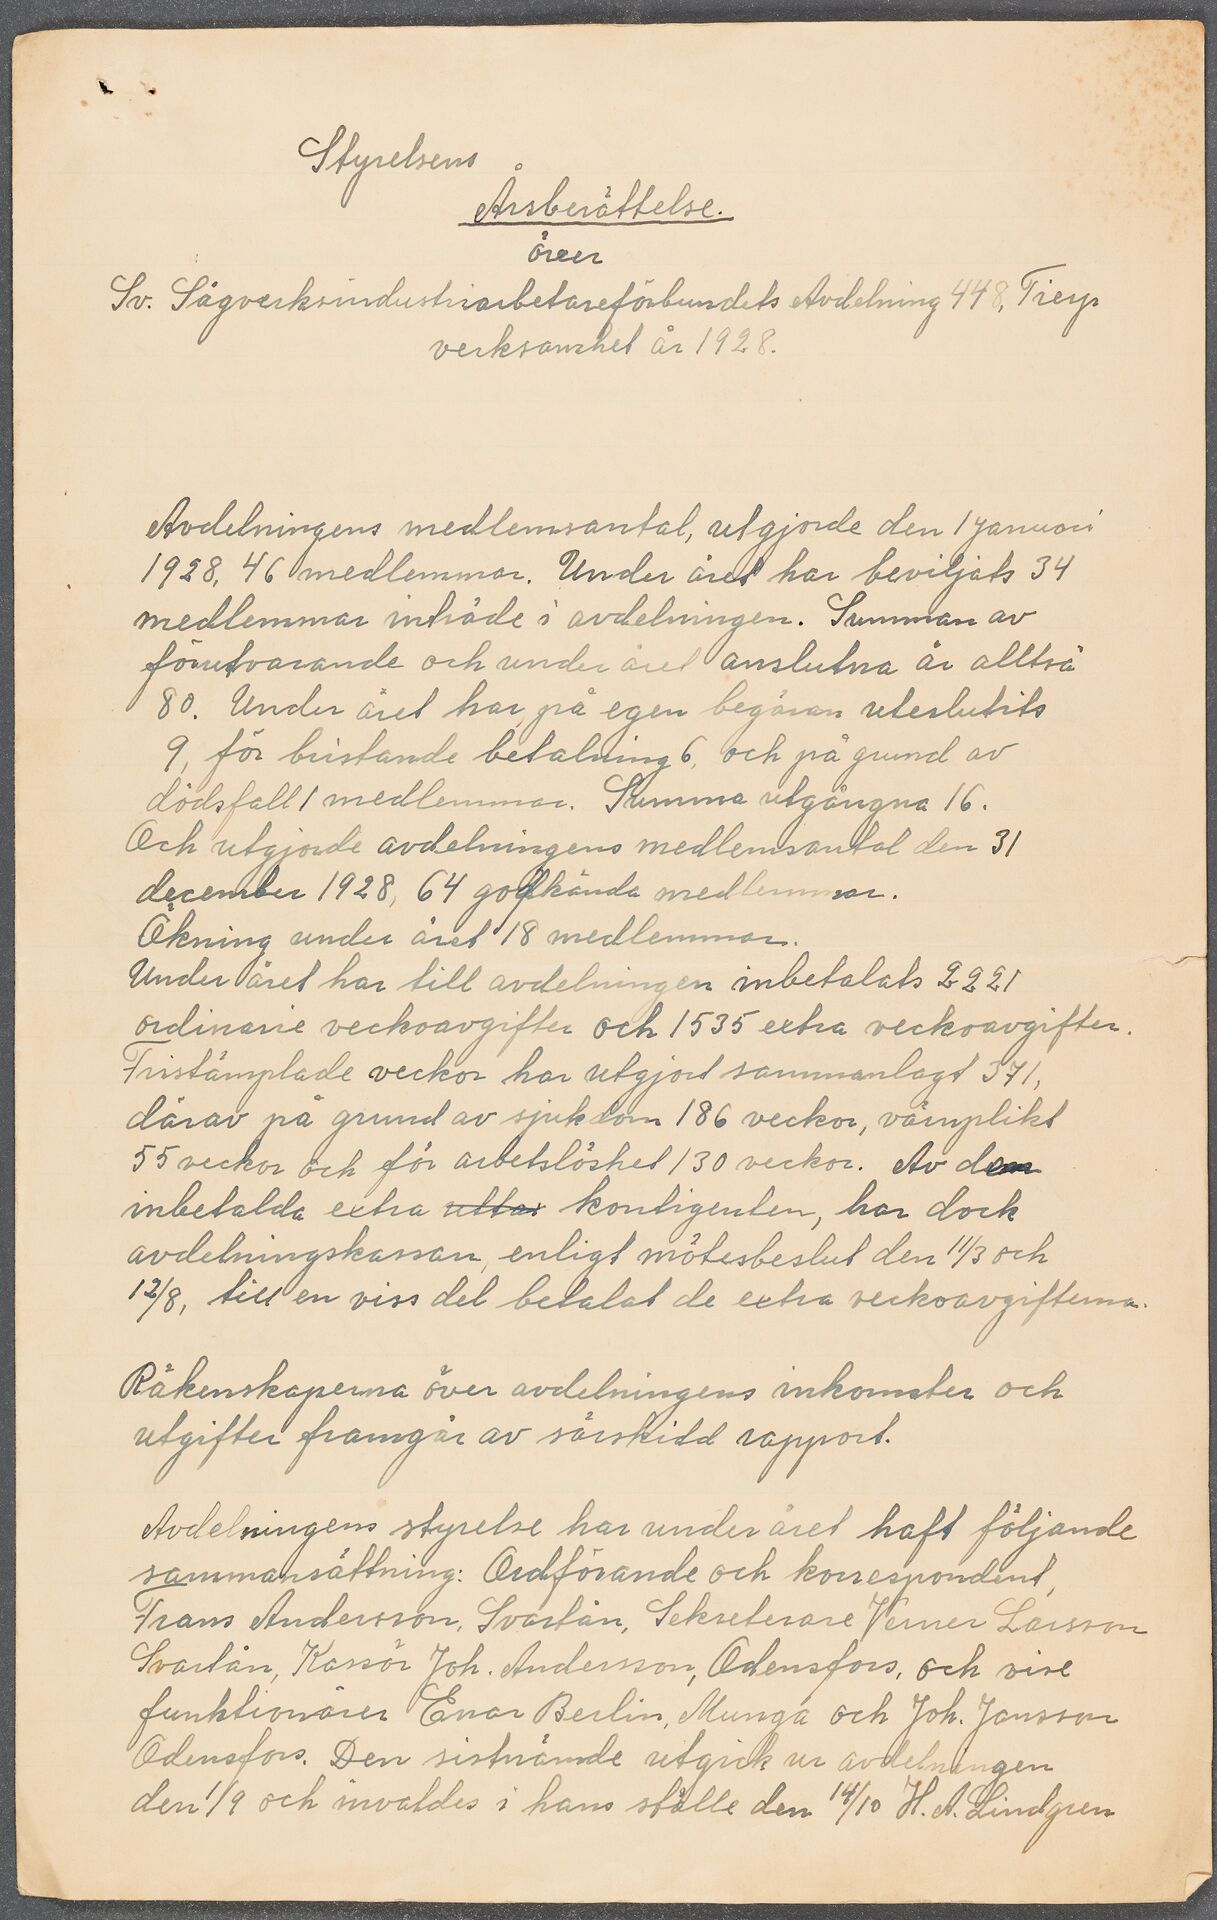 Styrelsens
Årsberättelse.
över
Sv. Sågverksindustriarbetareförbundets Avdelning 448, Tierp
verksamhet år 1928.
Avdelningens medlemsantal, utgjorde den 1 januari
1928, 46 medlemmar. Under året har beviljats 34
medlemmar inträde i avdelningen. Summan av
förutvarande och under året anslutna är alltså
80. Under året har på egen begäran uteslutits
9, för bristande betalning 6, och på grund av
dödsfall 1 medlemmar. Summa utgångna 16.
Och utgjorde avdelningens medlemsantal den 31
december 1928, 64 godkända medlemmar.
Ökning under året 18 medlemmar.
Under året har till avdelningen inbetalats 2221
ordinarie veckoavgifter och 1535 extra veckoavgifter.
Fristämplade veckor har utgjort sammanlagt 371,
därav på grund av sjukdom 186 veckor, värnplikt
55 veckor och för arbetslöshet 130 veckor. Av den
inbetalda extra uttax kontigenten, har dock
avdelningskassan, enligt mötesbeslut den 11/3 och
12/8, till en viss del betalat de extra veckoavgifterna.
Räkenskaperna över avdelningens inkomster och
utgifter framgår av särskild rapport.
Avdelningens styrelse har under året haft följande
sammansättning: Ordförande och korrespondent,
Frans Andersson, Svartån, Sekreterare Verner Larsson
Svartån, Kassör Joh. Andersson, Odensfors, och vise
funktionärer Enar Berlin, Munga och Joh. Jansson
Odensfors. Den sistnämde utgick ur avdelningen
den 1/9 och invaldes i hans ställe den 14/10 H. A. Lindgren